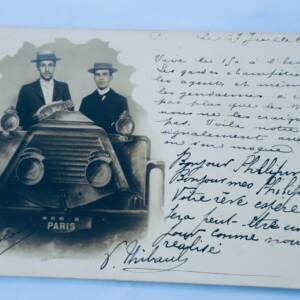 Le 29 Juillet
Vive le 150 à l'he
Les gardes champêtres
les agents et même
les gendarmes
pas plus que la
nous ne les craig
pas. Voilà notre
signalement
on s'en moque
Bonjour Phillipin
Bonjour mes
Votre rêve espère
sera peut-être un
jour comme nous
réalité
V. Thibault
PARIS